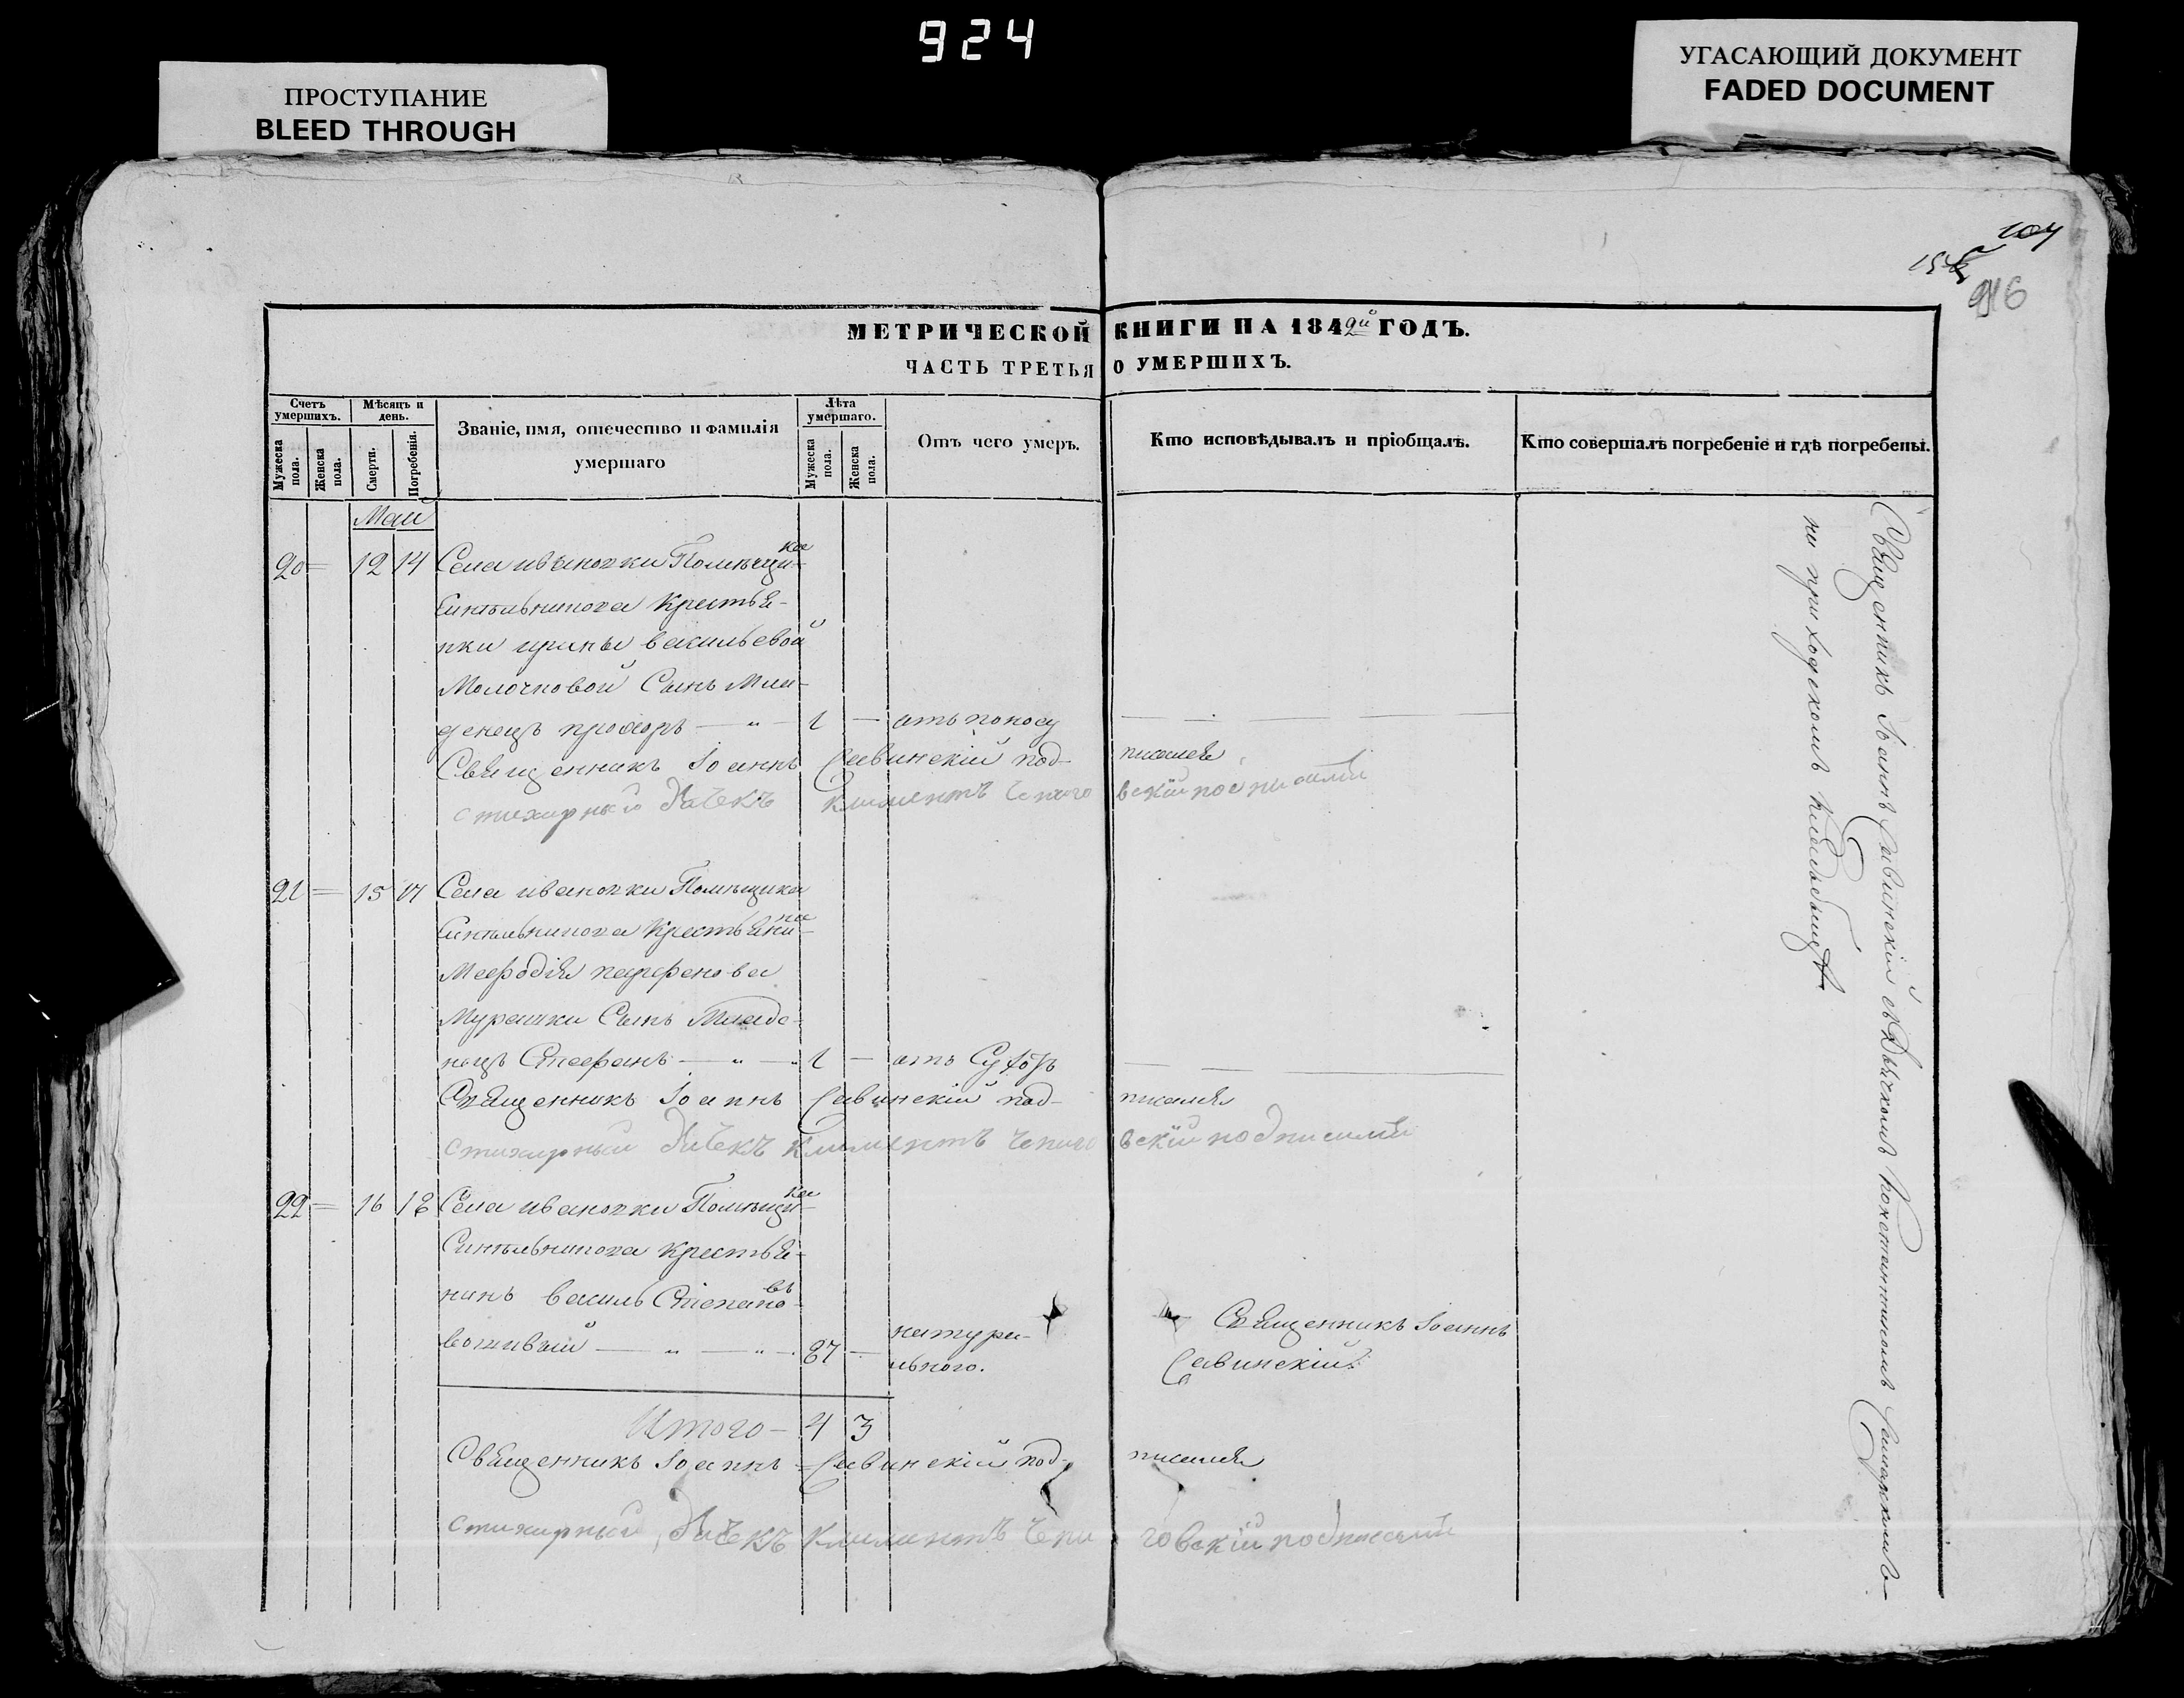 924
ПРОСТУПАНИЕ
BLEED THROUGH
УГАСАЮЩИЙ ДОКУМЕНТ
FADED DOCUMENT
104
916
МЕТРИЧЕСКОЙ КНИГИ НА 1842й ГОДЪ.
ЧАСТЬ ТРЕТЬЯ О УМЕРШИХЪ.
Счетъ умершихъ.
Мужеска пола.
Женска пола.
Мѣсяцъ и день.
Смерти.
Погребенія.
Званіе, имя, отечество и фамилія умершаго
Лѣта умершаго.
Мужеска пола.
Женска пола.
Отъ чего умеръ.
Кто исповѣдывалъ и пріобщалъ.
Кто совершалъ погребеніе и гдѣ погребены.
Май
20 = 12 14 Села ивановки Помѣщика
Синтельникова Крестья-
нки ирины васильевой
Молочковой Сынъ Мла-
денецъ прохоръ — " — 1 — отъ поносу
Священникъ Іоаннъ Савинскій подписался
стихарный Дячекъ климентъ подписалъ
21 = 15 17 Села ивановки Помѣщика
Синтельникова Крестьянина
Мефодія парфенова
Мурашки Сынъ Младе-
нецъ Стефанъ — " — 1 — отъ
Священникъ Іоаннъ Савинскій подписался
стихарный Дячекъ климентъ подписалъ
22 = 16 18 Села ивановки Помѣщика
Синтельникова Крестья-
нинъ василь Степановъ
— " — " — 87 — натуральнаго.
Священникъ Іоаннъ
Савинскій.
Итого — 4 3
Священникъ Іоаннъ Савинскій подписался
стихарный Дячекъ Климентъ подписалъ
Священникъ Іоаннъ Савинскій съ Дьячкомъ
на приходскомъ кладбищѣ